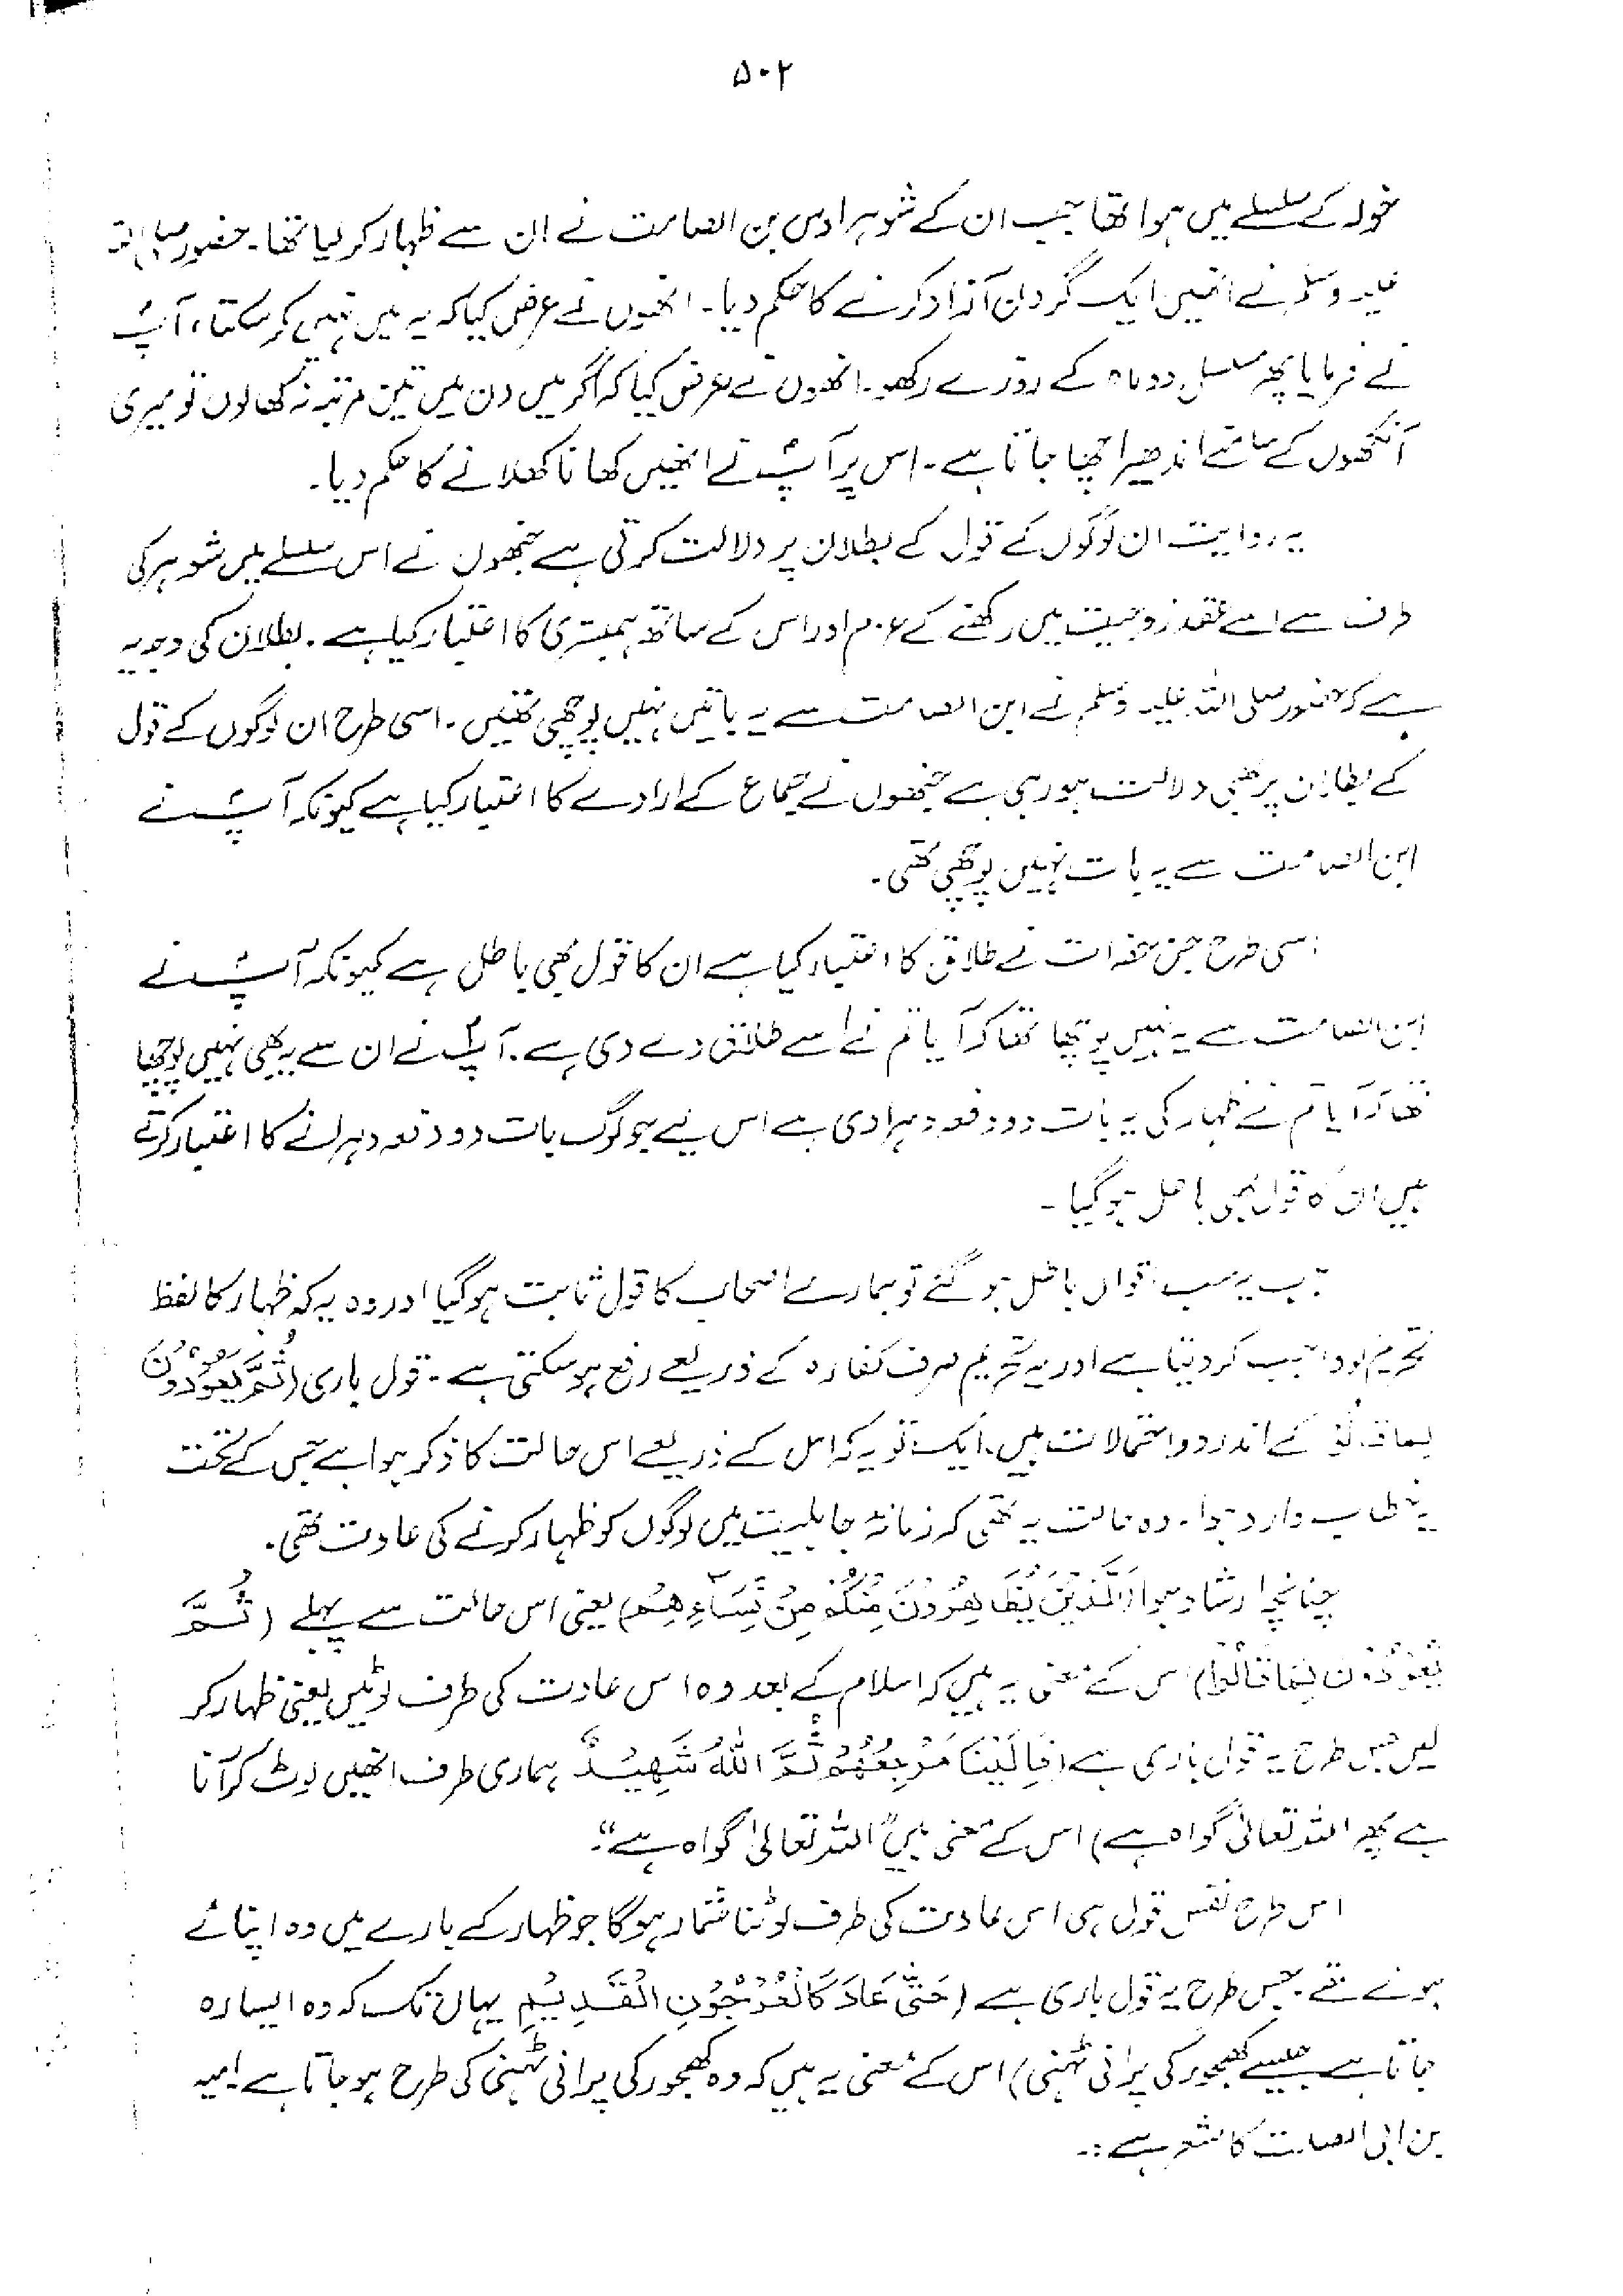 ۵۰۲
خولہ کے سلسلے میں ہوا تھا جب ان کے شوہر اوس بن الصامت نے ان سے ظہار کر لیا تھا۔ حضور صلی اللہ
علیہ وسلم نے انھیں ایک گردان آزاد کرنے کا حکم دیا۔ انھوں نے عرض کیا کہ یہ میں نہیں کر سکتا، آپؐ
نے فرمایا پھر مسلسل دو ماہ کے روزے رکھو۔ انھوں نے عرض کیا کہ اگر میں دن میں تین مرتبہ نہ کھالوں تو میری
آنکھوں کے سامنے اندھیرا چھا جاتا ہے۔ اس پر آپؐ نے انھیں کھانا کھلانے کا حکم دیا۔
یہ روایت ان لوگوں کے قول کے بطلان پر دلالت کرتی ہے جنھوں نے اس سلسلے میں شوہر کی
طرف سے اسے عقد زوجیت میں رکھنے کے عزم اور اس کے ساتھ ہمبستری کا اعتبار کیا ہے۔ بطلان کی وجہ یہ
ہے کہ حضور صلی اللہ علیہ وسلم نے ابن الصامت سے یہ باتیں نہیں پوچھی تھیں۔ اسی طرح ان لوگوں کے قول
کے بطلان پر بھی دلالت ہو رہی ہے جنھوں نے جماع کے ارادے کا اعتبار کیا ہے کیونکہ آپؐ نے
ابن الصامت سے یہ بات نہیں پوچھی تھی۔
اسی طرح جن حضرات نے طلاق کا اعتبار کیا ہے ان کا قول بھی باطل ہے کیونکہ آپؐ نے
ابن الصامت سے یہ نہیں پوچھا تھا کہ آیا تم نے اسے طلاق دے دی ہے۔ آپؐ نے ان سے یہ بھی نہیں پوچھا
تھا کہ آیا تم نے ظہار کی یہ بات دو دفعہ دہرادی ہے اس لیے جو لوگ بات دو دفعہ دہرانے کا اعتبار کرتے
ہیں ان کا قول بھی باطل ہو گیا۔
جب یہ سب اقوال باطل ہو گئے تو ہمارے اصحاب کا قول ثابت ہو گیا اور وہ یہ کہ ظہار کا لفظ
تحریم کو واجب کر دیتا ہے اور یہ تحریم صرف کفارہ کے ذریعے رفع ہو سکتی ہے۔ قول باری (ثُمَّ يَعُوْدُوْنَ
لِمَا قَالُوْا) کے اندر دو احتمالات ہیں۔ ایک تو یہ کہ اس کے ذریعے اس حالت کا ذکر ہوا ہے جس کے تحت
یہ خطاب وارد ہوا۔ وہ حالت یہ تھی کہ زمانۂ جاہلیت میں لوگوں کو ظہار کرنے کی عادت تھی۔
چنانچہ ارشاد ہوا (اَلَّذِيْنَ يُظَاهِرُوْنَ مِنْكُمْ مِنْ نِّسَآءِهِمْ) یعنی اس حالت سے پہلے (ثُمَّ
يَعُوْدُوْنَ لِمَا قَالُوْا) اس کے معنی یہ ہیں کہ اسلام کے بعد وہ اس عادت کی طرف لوٹیں یعنی ظہار کر
لیں جس طرح یہ قول باری ہے (فَاِلَيْنَا مَرْجِعُهُمْ ثُمَّ اللّٰهُ شَهِيْدٌ ہماری طرف انھیں لوٹ کر آنا
ہے پھر اللہ تعالیٰ گواہ ہے) اس کے معنی ہیں "اللہ تعالیٰ گواہ ہے"۔
اس طرح نفس قول ہی اس عادت کی طرف لوٹنا شمار ہوگا جو ظہار کے بارے میں وہ اپنائے
ہوئے تھے۔ جس طرح یہ قول باری ہے (حَتّٰى عَادَ كَالْعُرْجُوْنِ الْقَدِيْمِ یہاں تک کہ وہ ایسا رہ
جاتا ہے جیسے کھجور کی پرانی ٹہنی) اس کے معنی یہ ہیں کہ وہ کھجور کی پرانی ٹہنی کی طرح ہو جاتا ہے امیہ
بن ابی الصلت کا شعر ہے:۔